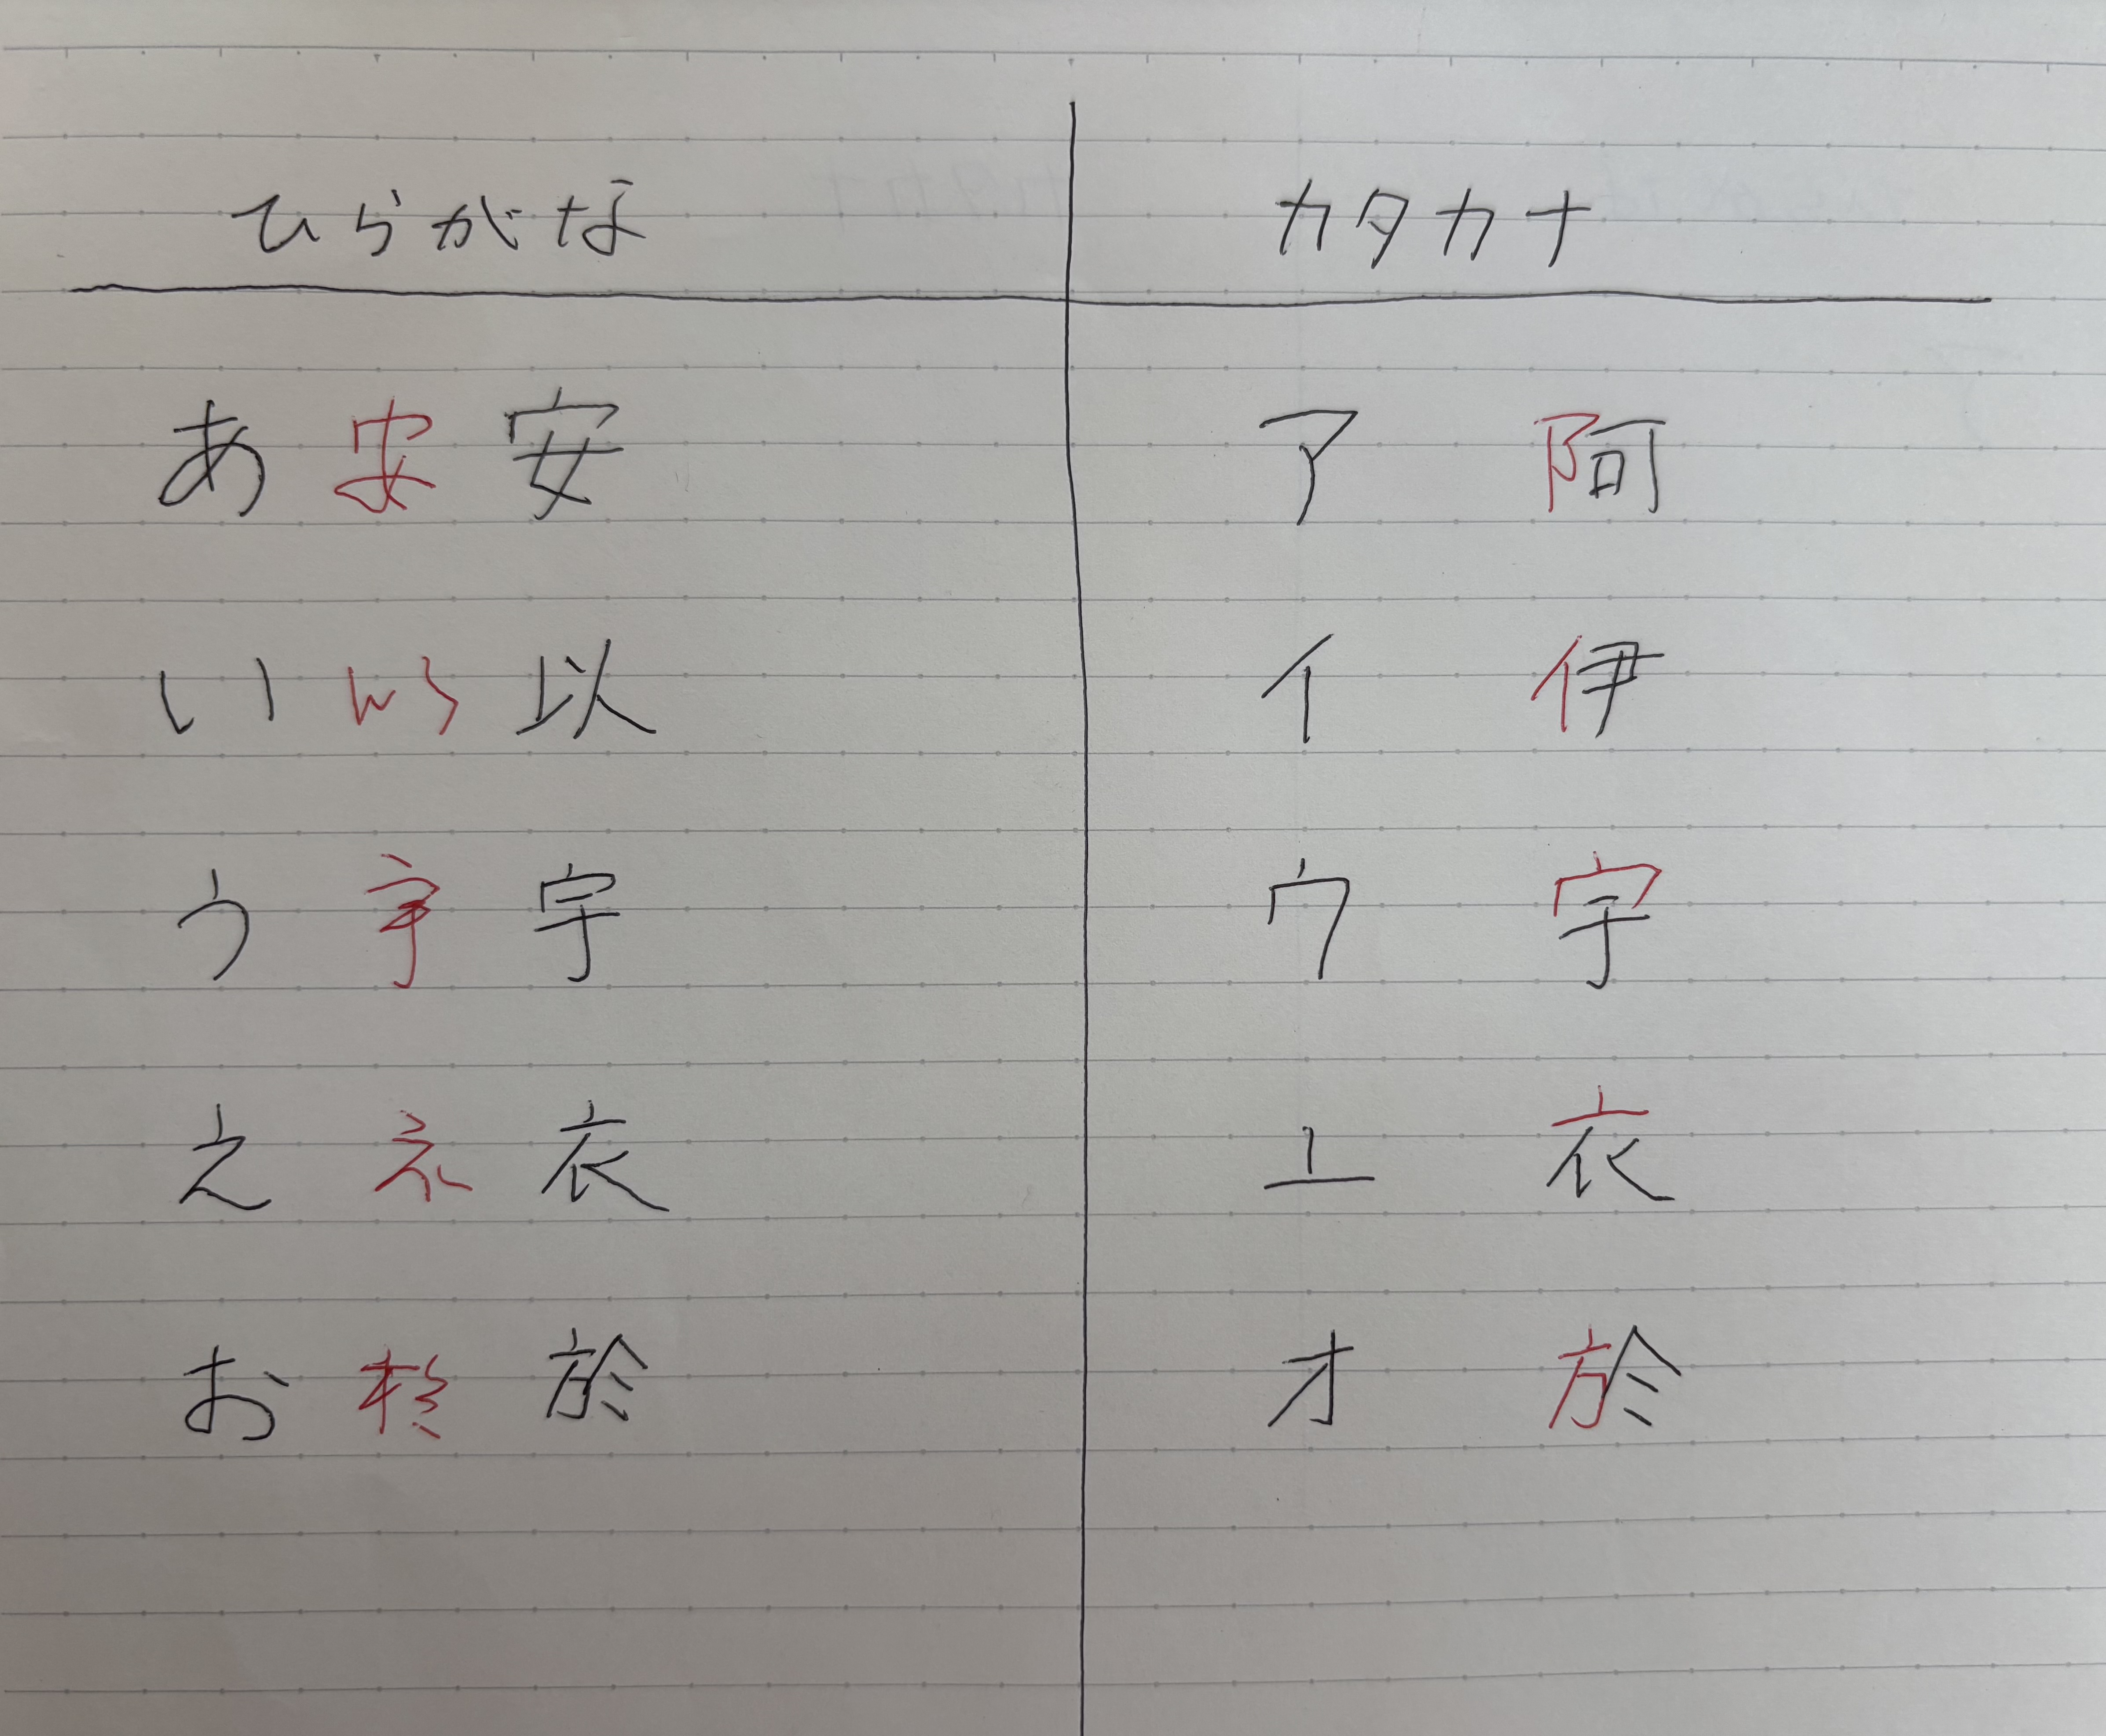 ひらがな カタカナ
あ 安 安 ア 阿
い 以 以 イ 伊
う 宇 宇 ウ 宇
え 衣 衣 エ 衣
お 於 於 オ 於